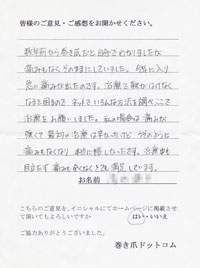 皆様のご意見・ご感想をお聞かせください。
数年前から巻き爪だと自分でわかりましたが
痛みもなくそのままにしていました。今年に入り
急に痛みが出たのです。治療を続けなければ
なると聞き、ネットでいろんな方法を調べ、ここで
治療をお願いしました。私の場合は痛みが
強くて最初の治療は辛かったけど、
痛みもなくなり本当に嬉しかったです。治療中も
目立たず痛みも全くなくとても満足しています。
お名前
こちらのご意見を、イニシャルにてホームページに掲載させ
て頂いてもよろしいですか はい・いいえ
ご協力ありがとうございました。
巻き爪ドットコム